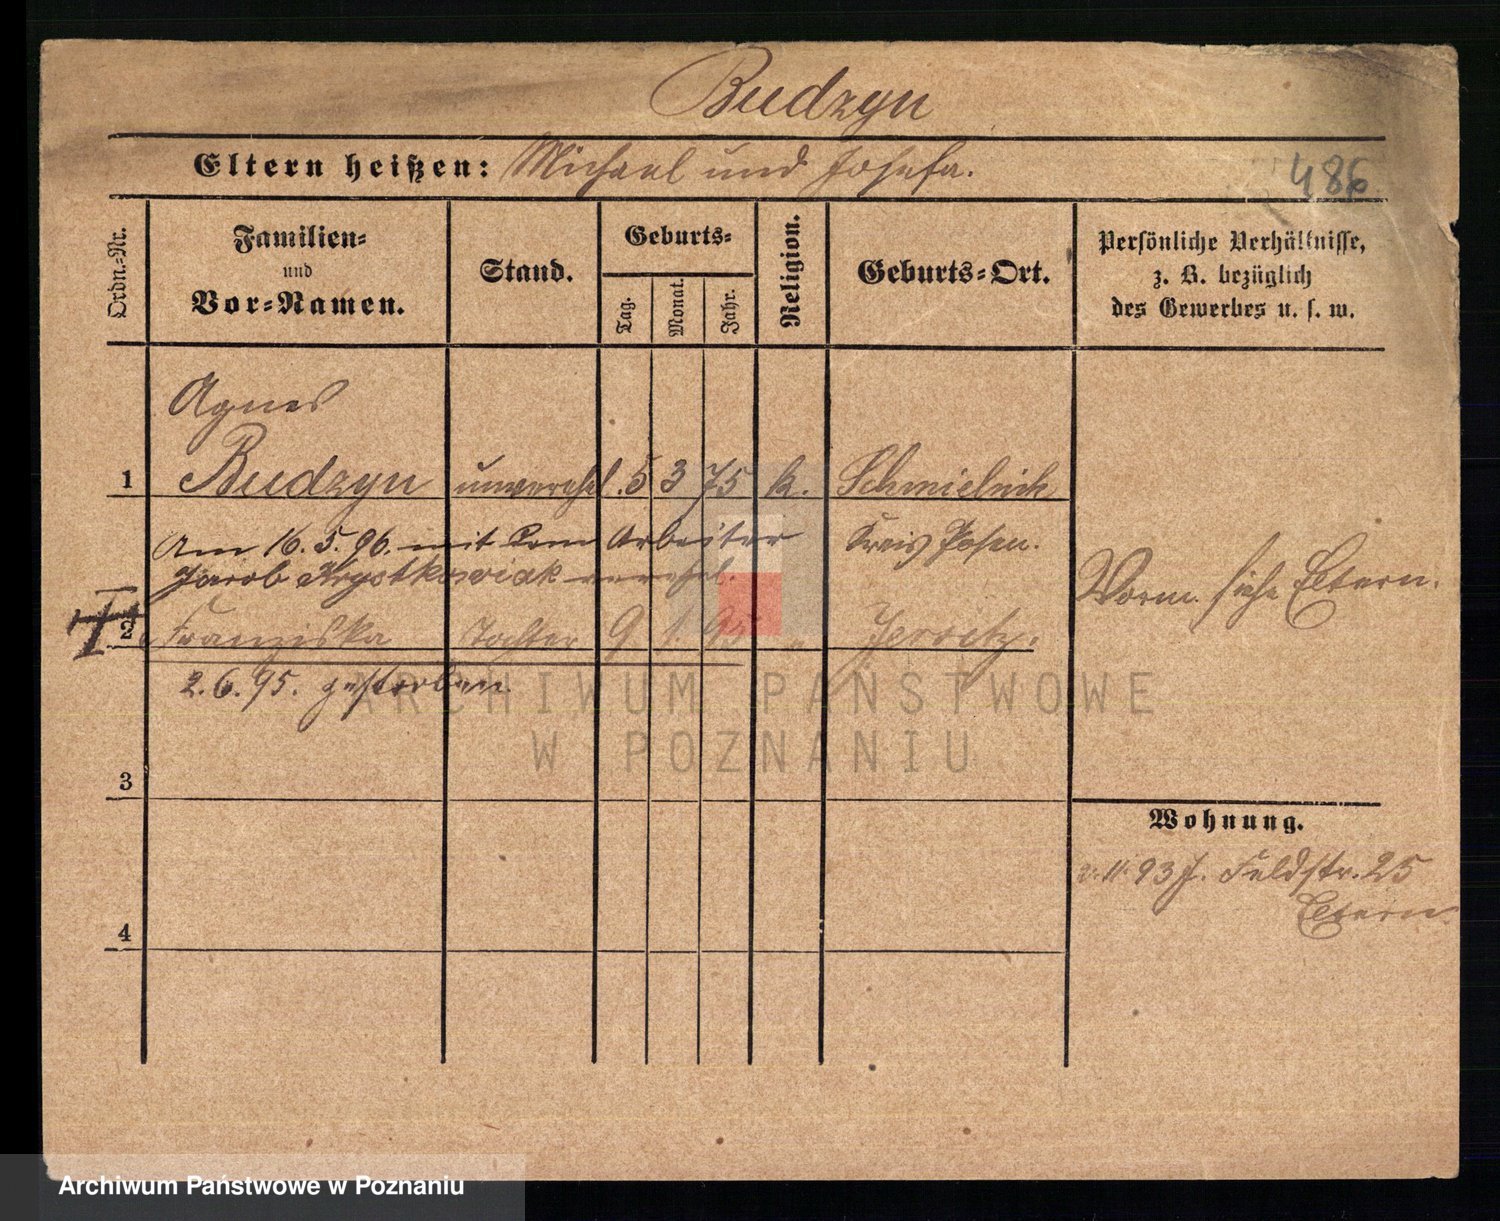 Budzyn
Eltern heißen: Michael und Josefa.
486
Ordn.-Nr.
Familien-
und
Vor-Namen.
Stand.
Geburts-
Tag.
Monat.
Jahr.
Religion.
Geburts-Ort.
Persönliche Verhältnisse,
z. B. bezüglich
des Gewerbes u. s. w.
Agnes
1 Budzyn unverehel. 5 3 75 k.
Kreis Posen.
Am 16.5.96. mit dem Arbeiter
Jacob verehel.
Vorm. siehe Eltern.
2 Franziska Tochter 9 1. 95 Jersitz.
2.6.95. gestorben.
3
4
Wohnung.
11. 93 J. Feldstr. 25
Eltern.
ARCHIWUM PAŃSTWOWE
W POZNANIU
Archiwum Państwowe w Poznaniu